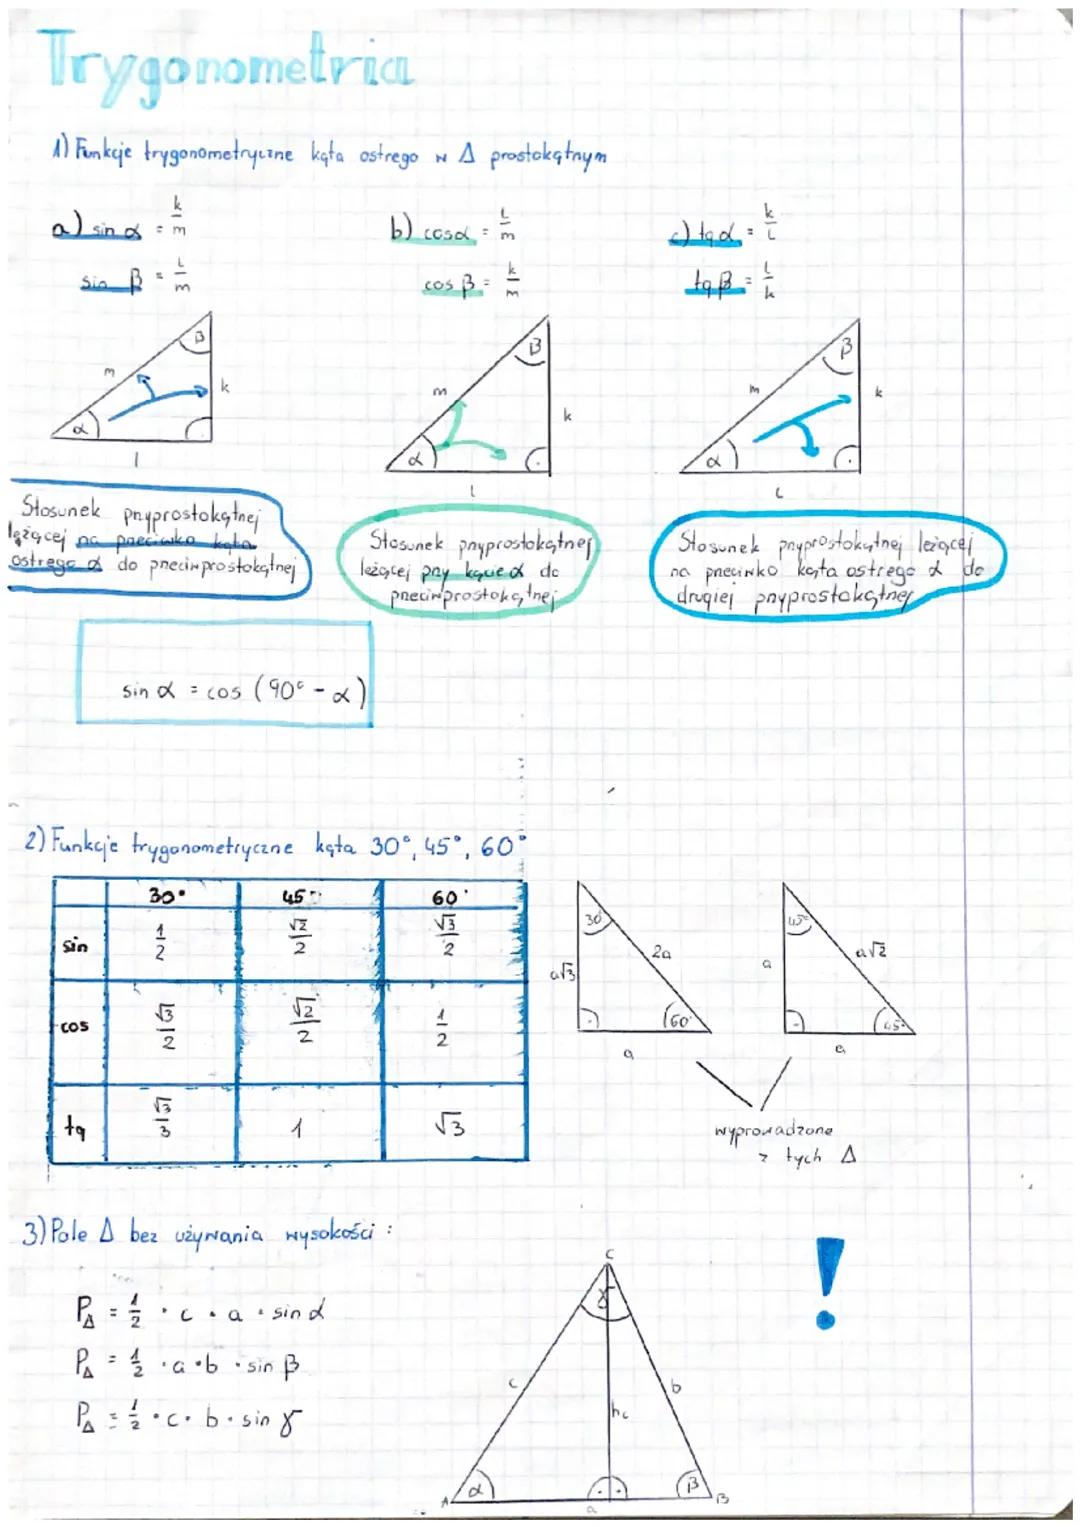 Trygonometria
1) Funkcje trygonometryczne kąta ostrego w Δ prostokątnym
a) sin α = k/m
sin β = l/m
b) cos α = l/m
cos β = k/m
c) tg α = k/l
tg β = l/k
m β k α l
m β k α l
m β k α l
Stosunek przyprostokątnej
leżącej na przeciwko kąta
ostrego α do przeciwprostokątnej
Stosunek przyprostokątnej
leżącej przy kącie α do
przeciwprostokątnej
Stosunek przyprostokątnej leżącej
na przeciwko kąta ostrego α do
drugiej przyprostokątnej
sin α = cos (90° - α)
2) Funkcje trygonometryczne kąta 30°, 45°, 60°
30° 45° 60°
sin 1/2 √2/2 √3/2
cos √3/2 √2/2 1/2
tg √3/3 1 √3
30° 2a a√3 60° a
45° a√2 a 45° a
wyprowadzone
z tych Δ
3) Pole Δ bez używania wysokości :
P_Δ = 1/2 · c · a · sin α
P_Δ = 1/2 · a · b · sin β
P_Δ = 1/2 · c · b · sin γ
!
C
γ
c b
hc
α β
A a B